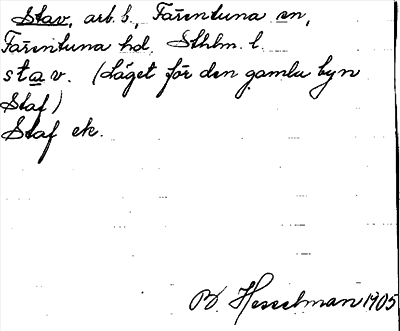 Stav, arb. b., Färentuna sn,
Färentuna hd, Sthlm. l.
stav. (Läget för den gamla byn
Staf)
Staf ek.
B. Hesselman 1905